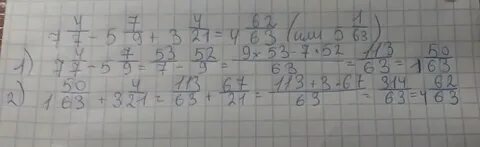 7 4/7 - 5 7/9 + 3 4/21 = 4 62/63 (или 5 1/63)
1) 7 4/7 - 5 7/9 = 53/7 - 52/9 = (9·53-7·52)/63 = 113/63 = 1 50/63
2) 1 50/63 + 3 4/21 = 113/63 + 67/21 = (113+3·67)/63 = 314/63 = 4 62/63